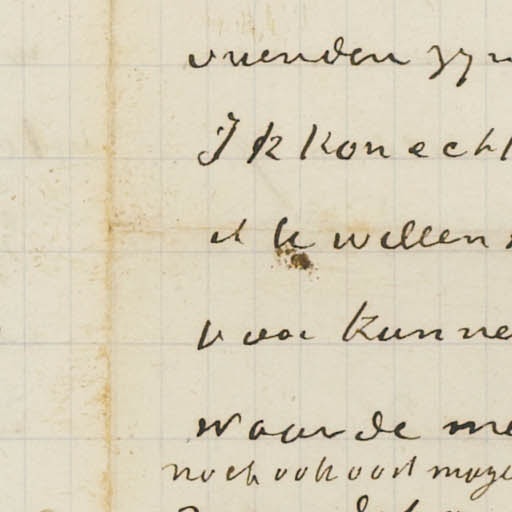 vrienden zyn
Ik kon echt
willen
voor kunne
waarde me
noch ook ooit moge